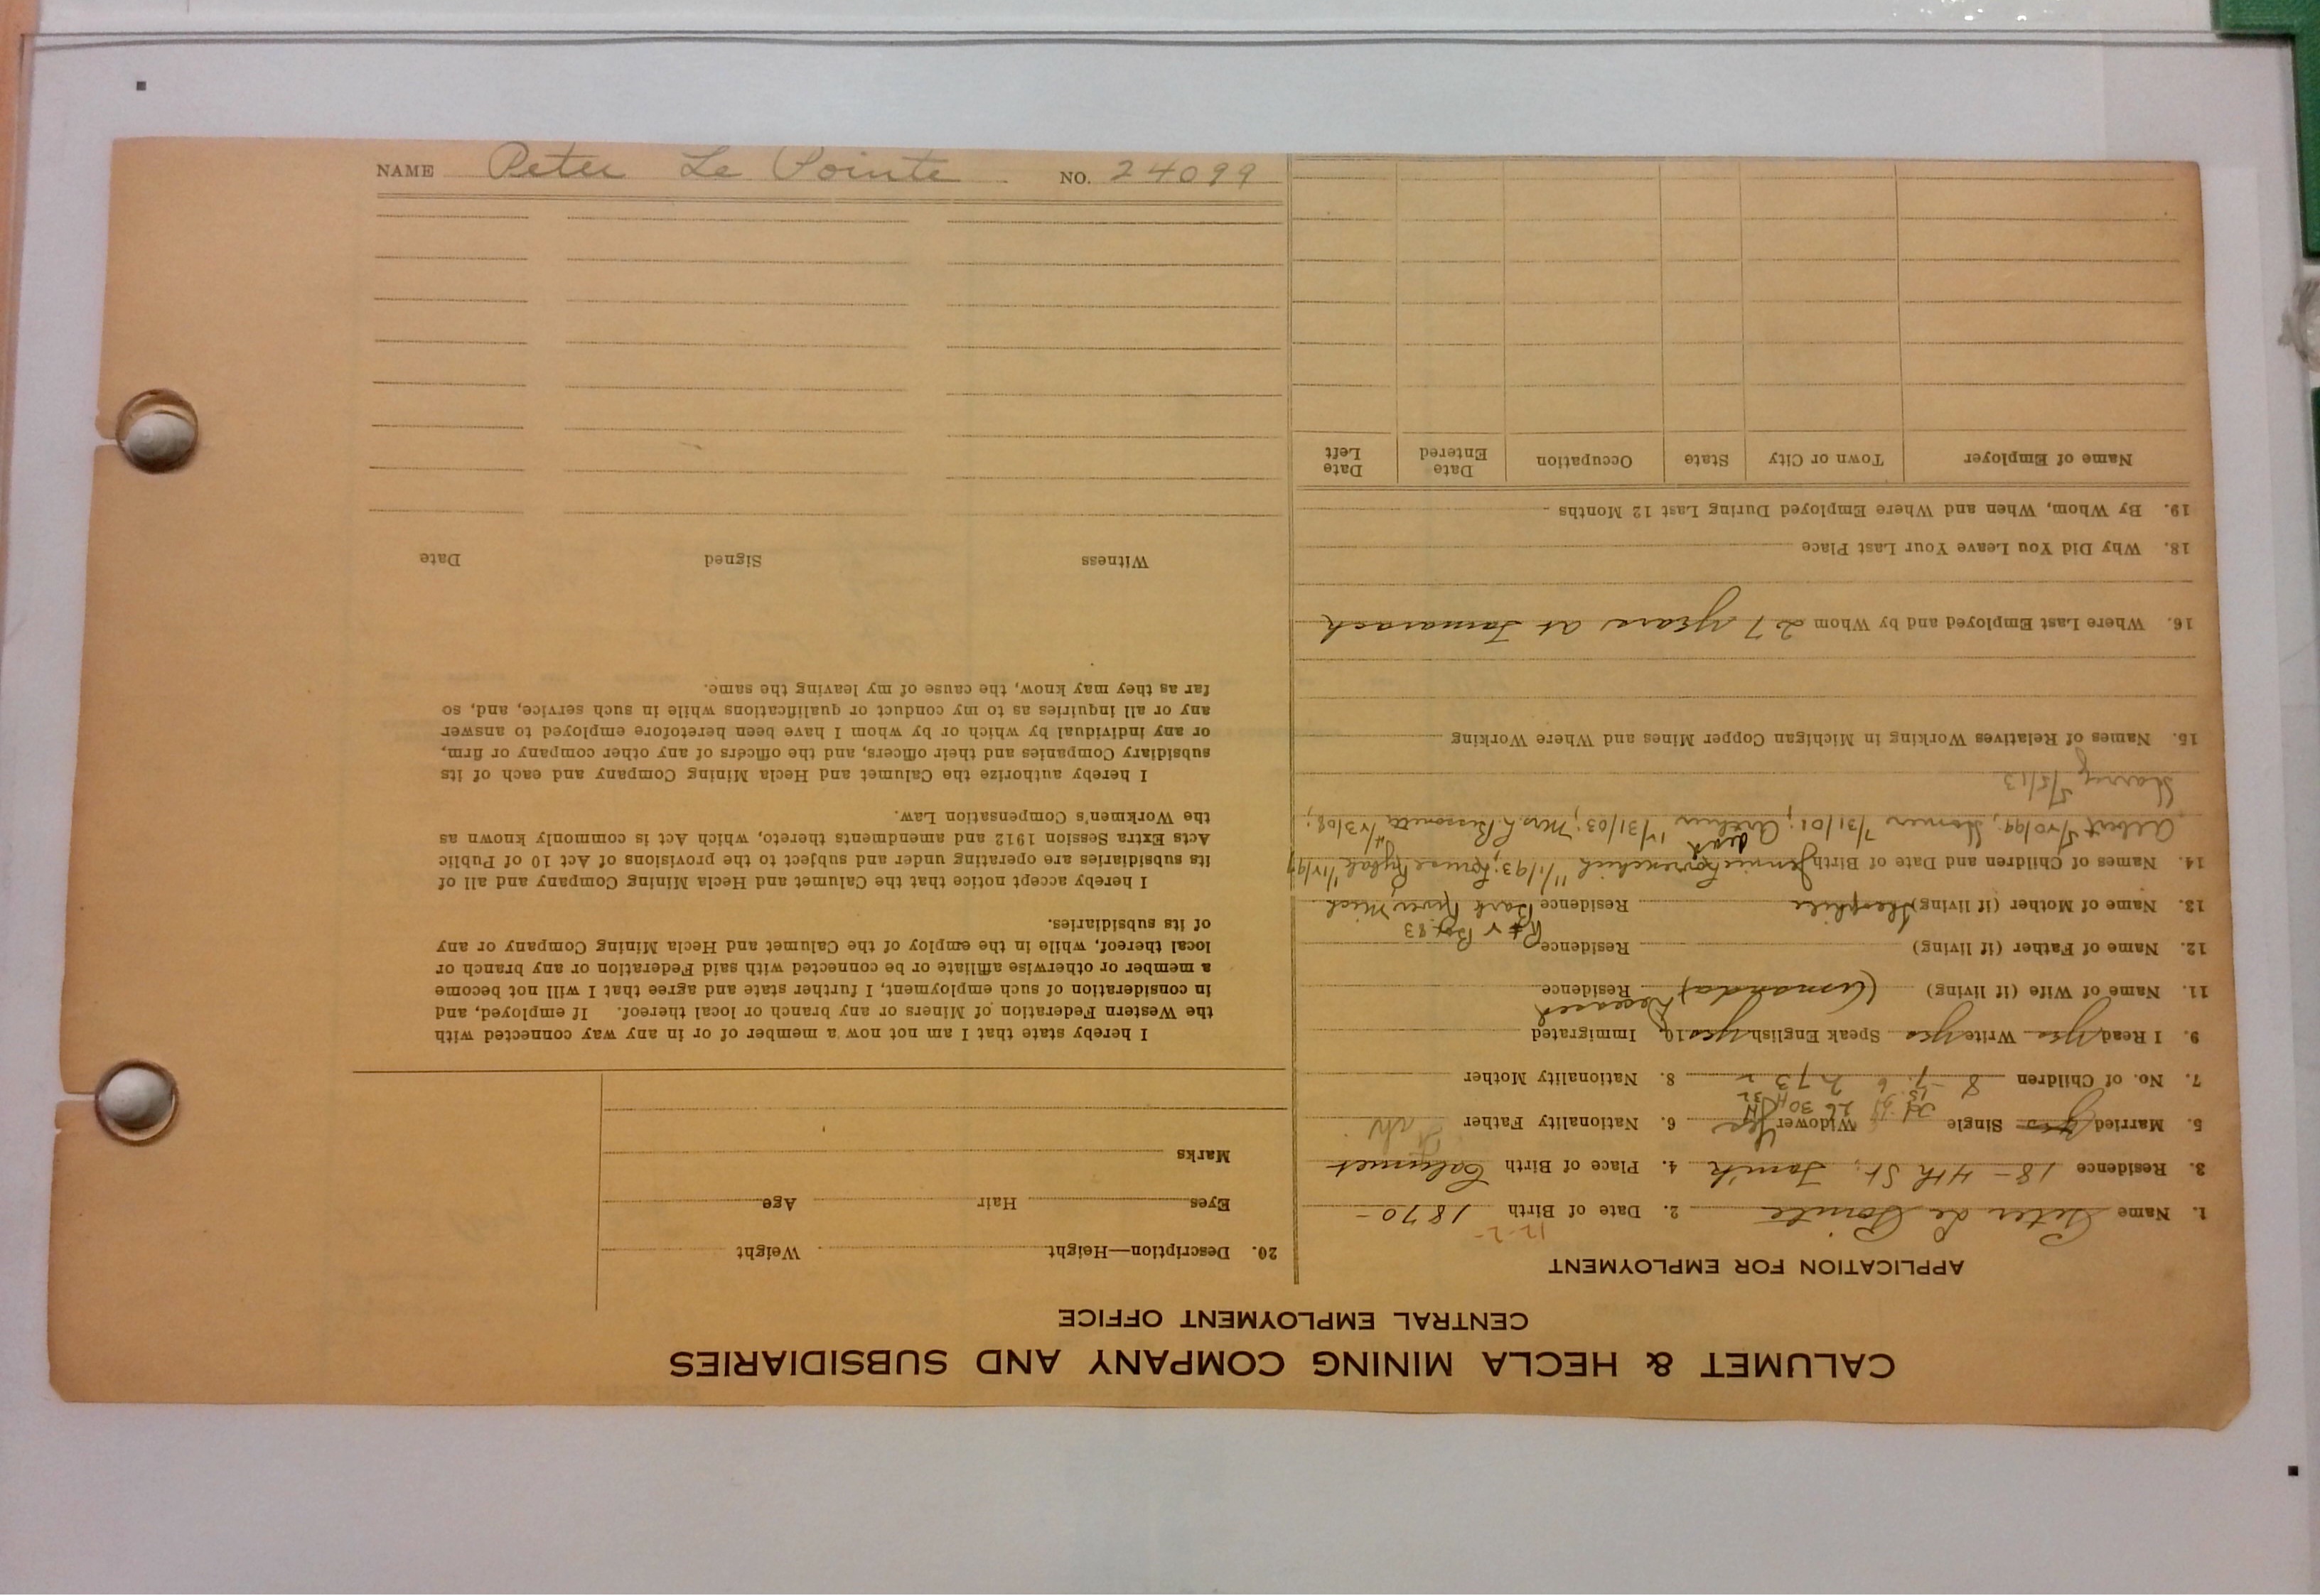 CALUMET & HECLA MINING COMPANY AND SUBSIDIARIES
CENTRAL EMPLOYMENT OFFICE
APPLICATION FOR EMPLOYMENT
12-2-
1. Name Peter Le Pointe 2. Date of Birth 1870-
3. Residence 18-4th St. Tam'k 4. Place of Birth Calumet
5. Married yes Single Widower Yes 6. Nationality Father
26 30 32
7. No. of Children 8 7 6 8. Nationality Mother
9. I Read yes Write yes Speak English yes 10. Immigrated
11. Name of Wife (if living) (Amanda) Deceased Residence
12. Name of Father (if living) Residence
Box 83
13. Name of Mother (if living) Residence Bark River Mich
14. Names of Children and Date of Birth Jennie 11/1/93; Louise
dead
Albert 5/20/99; Homer 7/31/01; Arthur 12/31/03; Mrs.
Harvey 5/5/13
15. Names of Relatives Working in Michigan Copper Mines and Where Working
16. Where Last Employed and by Whom 27 years at Tamarack
18. Why Did You Leave Your Last Place
19. By Whom, When and Where Employed During Last 12 Months
Name of Employer Town or City State Occupation Date Entered Date Left
20. Description—Height Weight
Eyes Hair Age
Marks
I hereby state that I am not now a member of or in any way connected with
the Western Federation of Miners or any branch or local thereof. If employed, and
in consideration of such employment, I further state and agree that I will not become
a member or otherwise affiliate or be connected with said Federation or any branch or
local thereof, while in the employ of the Calumet and Hecla Mining Company or any
of its subsidiaries.
I hereby accept notice that the Calumet and Hecla Mining Company and all of
its subsidiaries are operating under and subject to the provisions of Act 10 of Public
Acts Extra Session 1912 and amendments thereto, which Act is commonly known as
the Workmen's Compensation Law.
I hereby authorize the Calumet and Hecla Mining Company and each of its
subsidiary Companies and their officers, and the officers of any other company or firm,
or any individual by which or by whom I have been heretofore employed to answer
any or all inquiries as to my conduct or qualifications while in such service, and, so
far as they may know, the cause of my leaving the same.
Witness Signed Date
NAME Peter Le Pointe NO. 24099